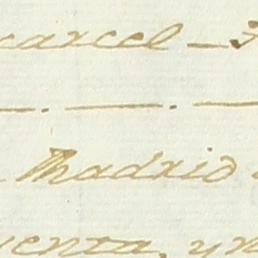 carcel —
— . — . —
Madrid
uenta, y n